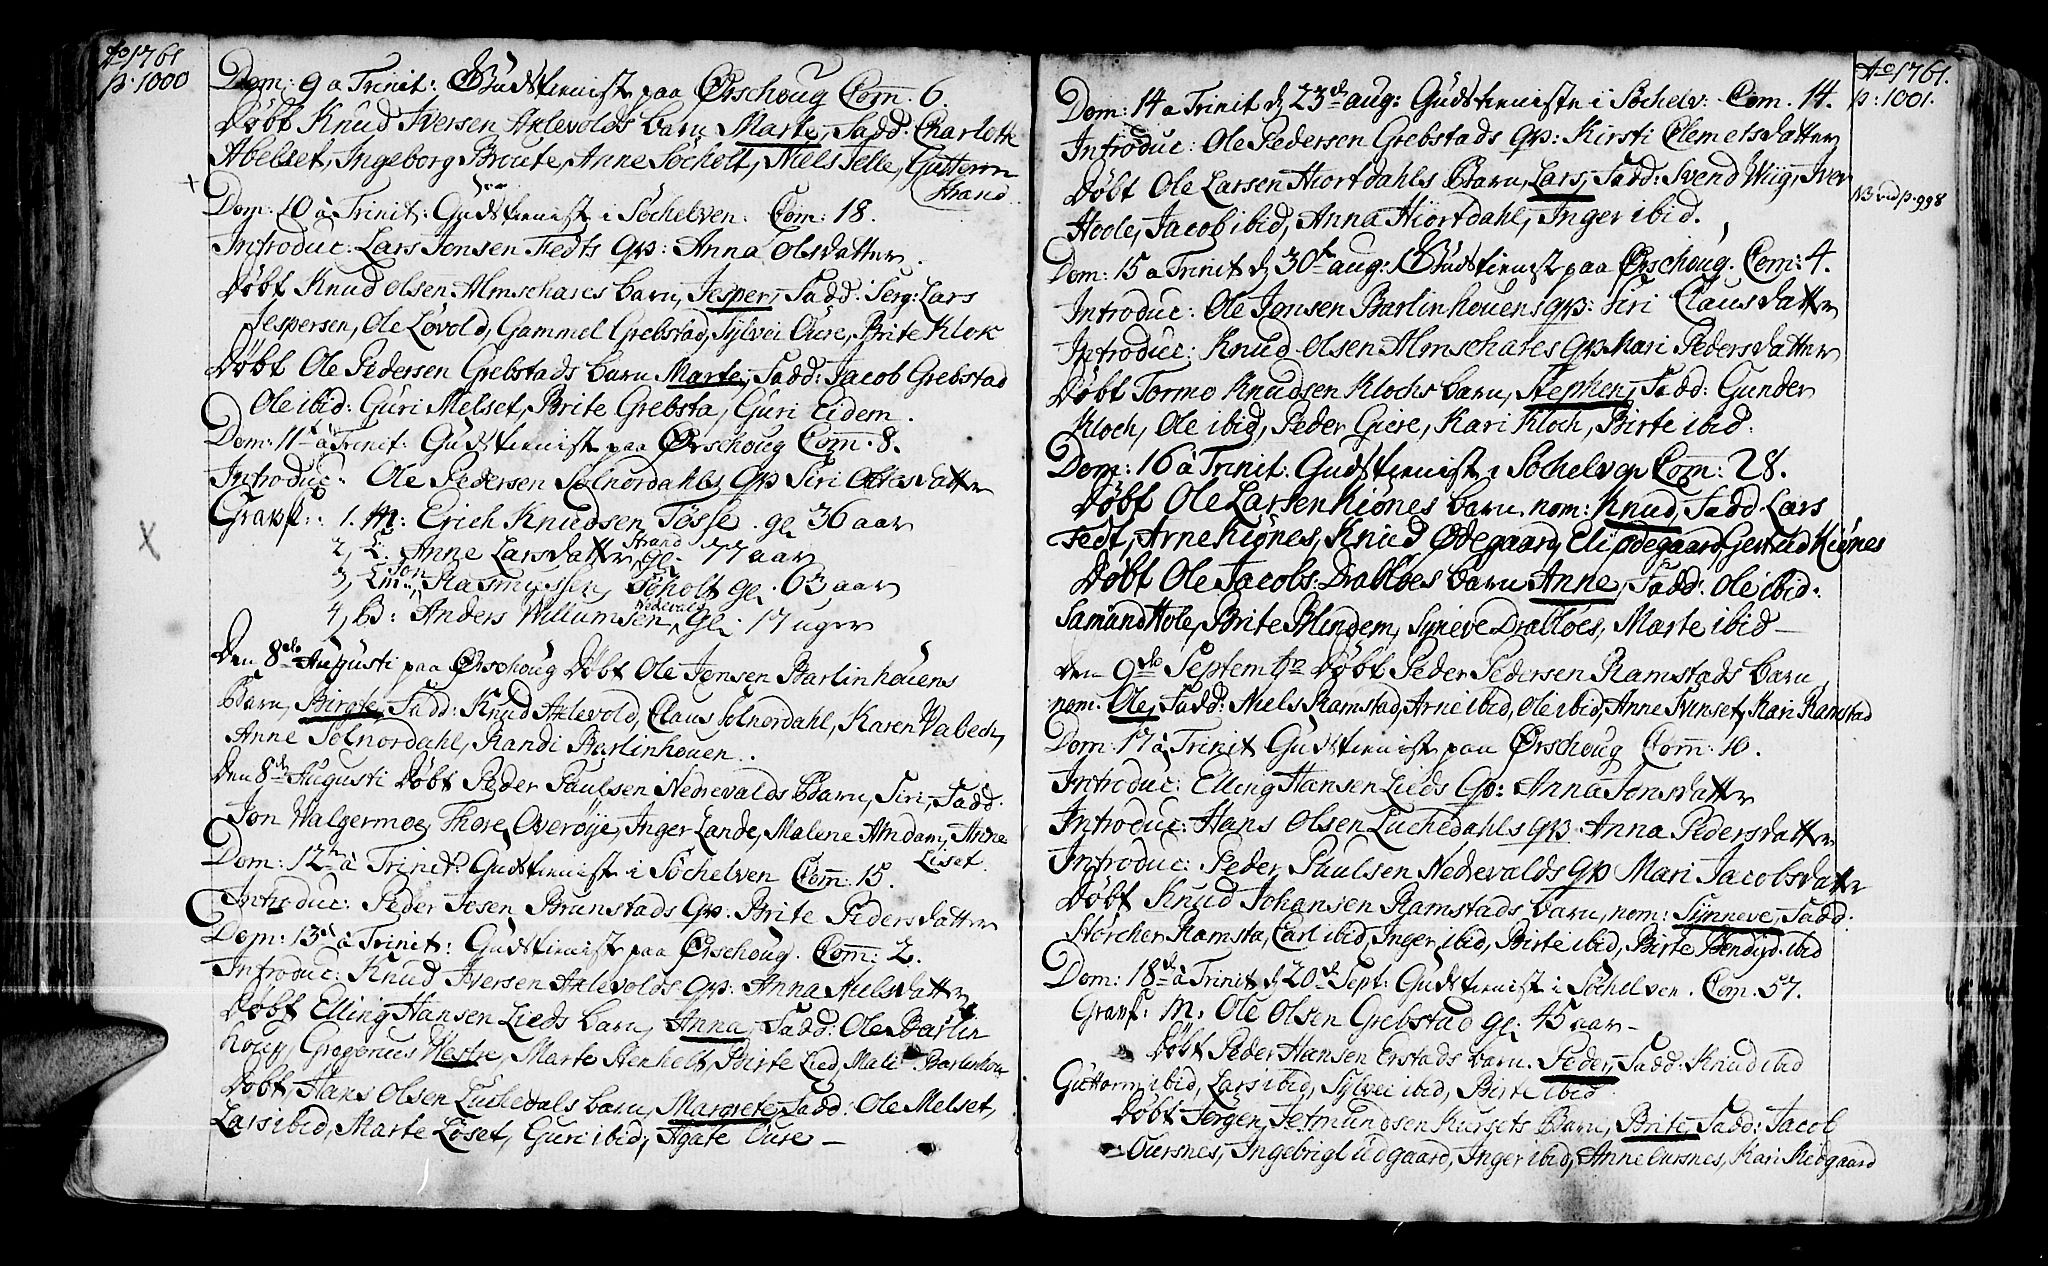 Ao 1761
p: 1000
Dom: 9 a Trinit: Gudstienist paa Ørschoug Com: 6.
Døbt Knud Iversen Axlevolds barn Marte, Fadd: Charlotte
Abelset, Ingeborg Broute, Anne Søcholt, Niels Telle, Guttorm
Strand
Dom: 10 à Trinit: Gudstienist i Søchelven: Com: 18.
Introduc: Lars Jonsen Fedts qv: Anna Olsdatter.
Døbt Knud Olsen Almschares barn, Jesper, Fadd: Serg: Lars
Jespersen, Ole Løvold, Gammel Grebstad, Sylvei Oure, Brite Klok
Døbt Ole Pedersen Grebstads barn Marte, Fadd: Jacob Grebstad
Ole ibid: Guri Melset, Brite Grebsta, Guri Eidem.
Dom: 11te à Trinit: Gudstienist paa Ørschoug Com. 8.
Introduc: Ole Pedersen Solnordahls qv Siri Ottesdatter
Gravf: 1. M: Erich Knudsen Tosse. gl 36 aar
2, L: Anne Larsdatter Strand gl. 77 aar
3, Lm: Jon Rasmussen Søholt gl. 63 aar
4, B: Anders Willumsen Nedrevald gl: 17 uger
Den 8de Augusti paa Ørschoug Døbt Ole Jensen Barlinhouens
Barn, Birgte, Fadd: Knud Axlevold, Claus Solnordahl, Karen Vabech,
Anne Solnordahl, Randi Barlinhouen.
Den 8de Augusti Døbt Peder Paulsen Nedrevalds Barn, Siri, Fadd:
Jon Walgermoe, Thore Overøye, Inger Lande, Malene Amdam, Anne
Liset
Dom: 12te à Trinit: Gudstienist i Søchelven Com: 15.
Introduc: Peder Josen Brunstads qv: Brite Pedersdatter
Dom: 13de à Trinit: Gudstienist paa Ørschoug. Com: 2.
Introduc: Knud Iversen Axlevolds qv: Anna Nielsdatter
Døbt Elling Hansen Lieds barn, Anna, Fadd: Ole Barlin
houen, Gregorius Westre, Marte Stenholt, Birte Lied, Mali Barlinhou
Døbt, Hans Olsen Luchedals barn, Margrete, Fadd: Ole Melset,
Lars ibid, Marte Løset, Guri ibid, Agate Oure –
Ao 1761.
p: 1001.
Dom: 14 a Trinit d 23de aug: Gudstieniste i Søchelv: Com. 14.
Introduc: Ole Pedersen Grebstads qv: Kirsti Clemetsdatter
Døbt Ole Larsen Hiortdahls Barn, Lars, Fadd: Svend Wiig, Iver
NB vid p. 998
Hoole, Jacob ibid, Anna Hiortdahl, Inger ibid.
Dom: 15 a Trinit d 30te aug: Gudstienist paa Ørschoug. Com: 4.
Introduc: Ole Jensen Barlinhouens qv: Siri Clausdatter
Introduc: Knud Olsen Almschares qv Kari Pedersdatter
Døbt Tormo Knudsen Klochs barn, Stephen, Fadd: Gunder
Kloch, Ole ibid, Peder Giere, Kari Kloch, Birte ibid.
Dom: 16 à Trinit: Gudstienist i Søchelven Com: 28.
Døbt Ole Larsen Kiønes barn. nom: Knud, Fadd. Lars
Fedt, Arne Kiønes, Knud Ødegaard, Eli Ødegaard, Gertrud Kiønes
Døbt Ole Jacobs: Drabloes barn Anne, Fadd: Ole ibid:
Samund Hole, Brite Blindem, Syneve Drabloes, Marte ibid –
Den 9de Septembr Døbt Peder Pedersen Ramstads barn
nom. Ole, Fadd: Niels Ramstad, Arne ibid, Ole ibid, Anne Svinset, Kari Ramstad
Dom: 17 à Trinit Gudstienist paa Ørschoug Com: 10.
Introduc: Elling Hansen Lieds qv: Anna Jonsdatter
Introduc: Hans Olsen Luchedahls qv: Anna Pedersdatter
Introduc: Peder Paulsen Nedrevalds qv Mari Jacobsdatter
Døbt Knud Johansen Ramstads barn, nom: Synneve, Fadd:
Størcher Ramsta, Carl ibid, Inger ibid, Birte ibid, Birte Bendixd. ibid
Dom: 18de à Trinit d 20de Sept: Gudstienist i Søchelven. Com. 57.
Gravf: M. Ole Olsen Grebstad gl: 45 aar –
Døbt Peder Hansen Erstads barn. Peder, Fadd: Knud ibid
Guttorm ibid, Lars ibid, Sylvei ibid, Birte ibid
Døbt Jørgen Jetmundsen Hursets Barn, Brite, Fadd: Jacob
Oursnes, Ingebrigt Uidgaard, Inger ibid, Anne Oursnes, Kari Midgaard